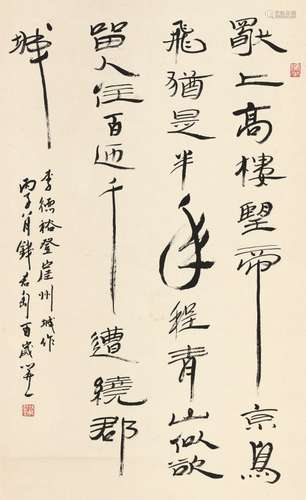 獨上高樓望帝京鳥
飛猶是半年程青山似欲
留人住百匝千遭繞郡
城
李德裕登崖州城作
丙子八月錢君匋百歲